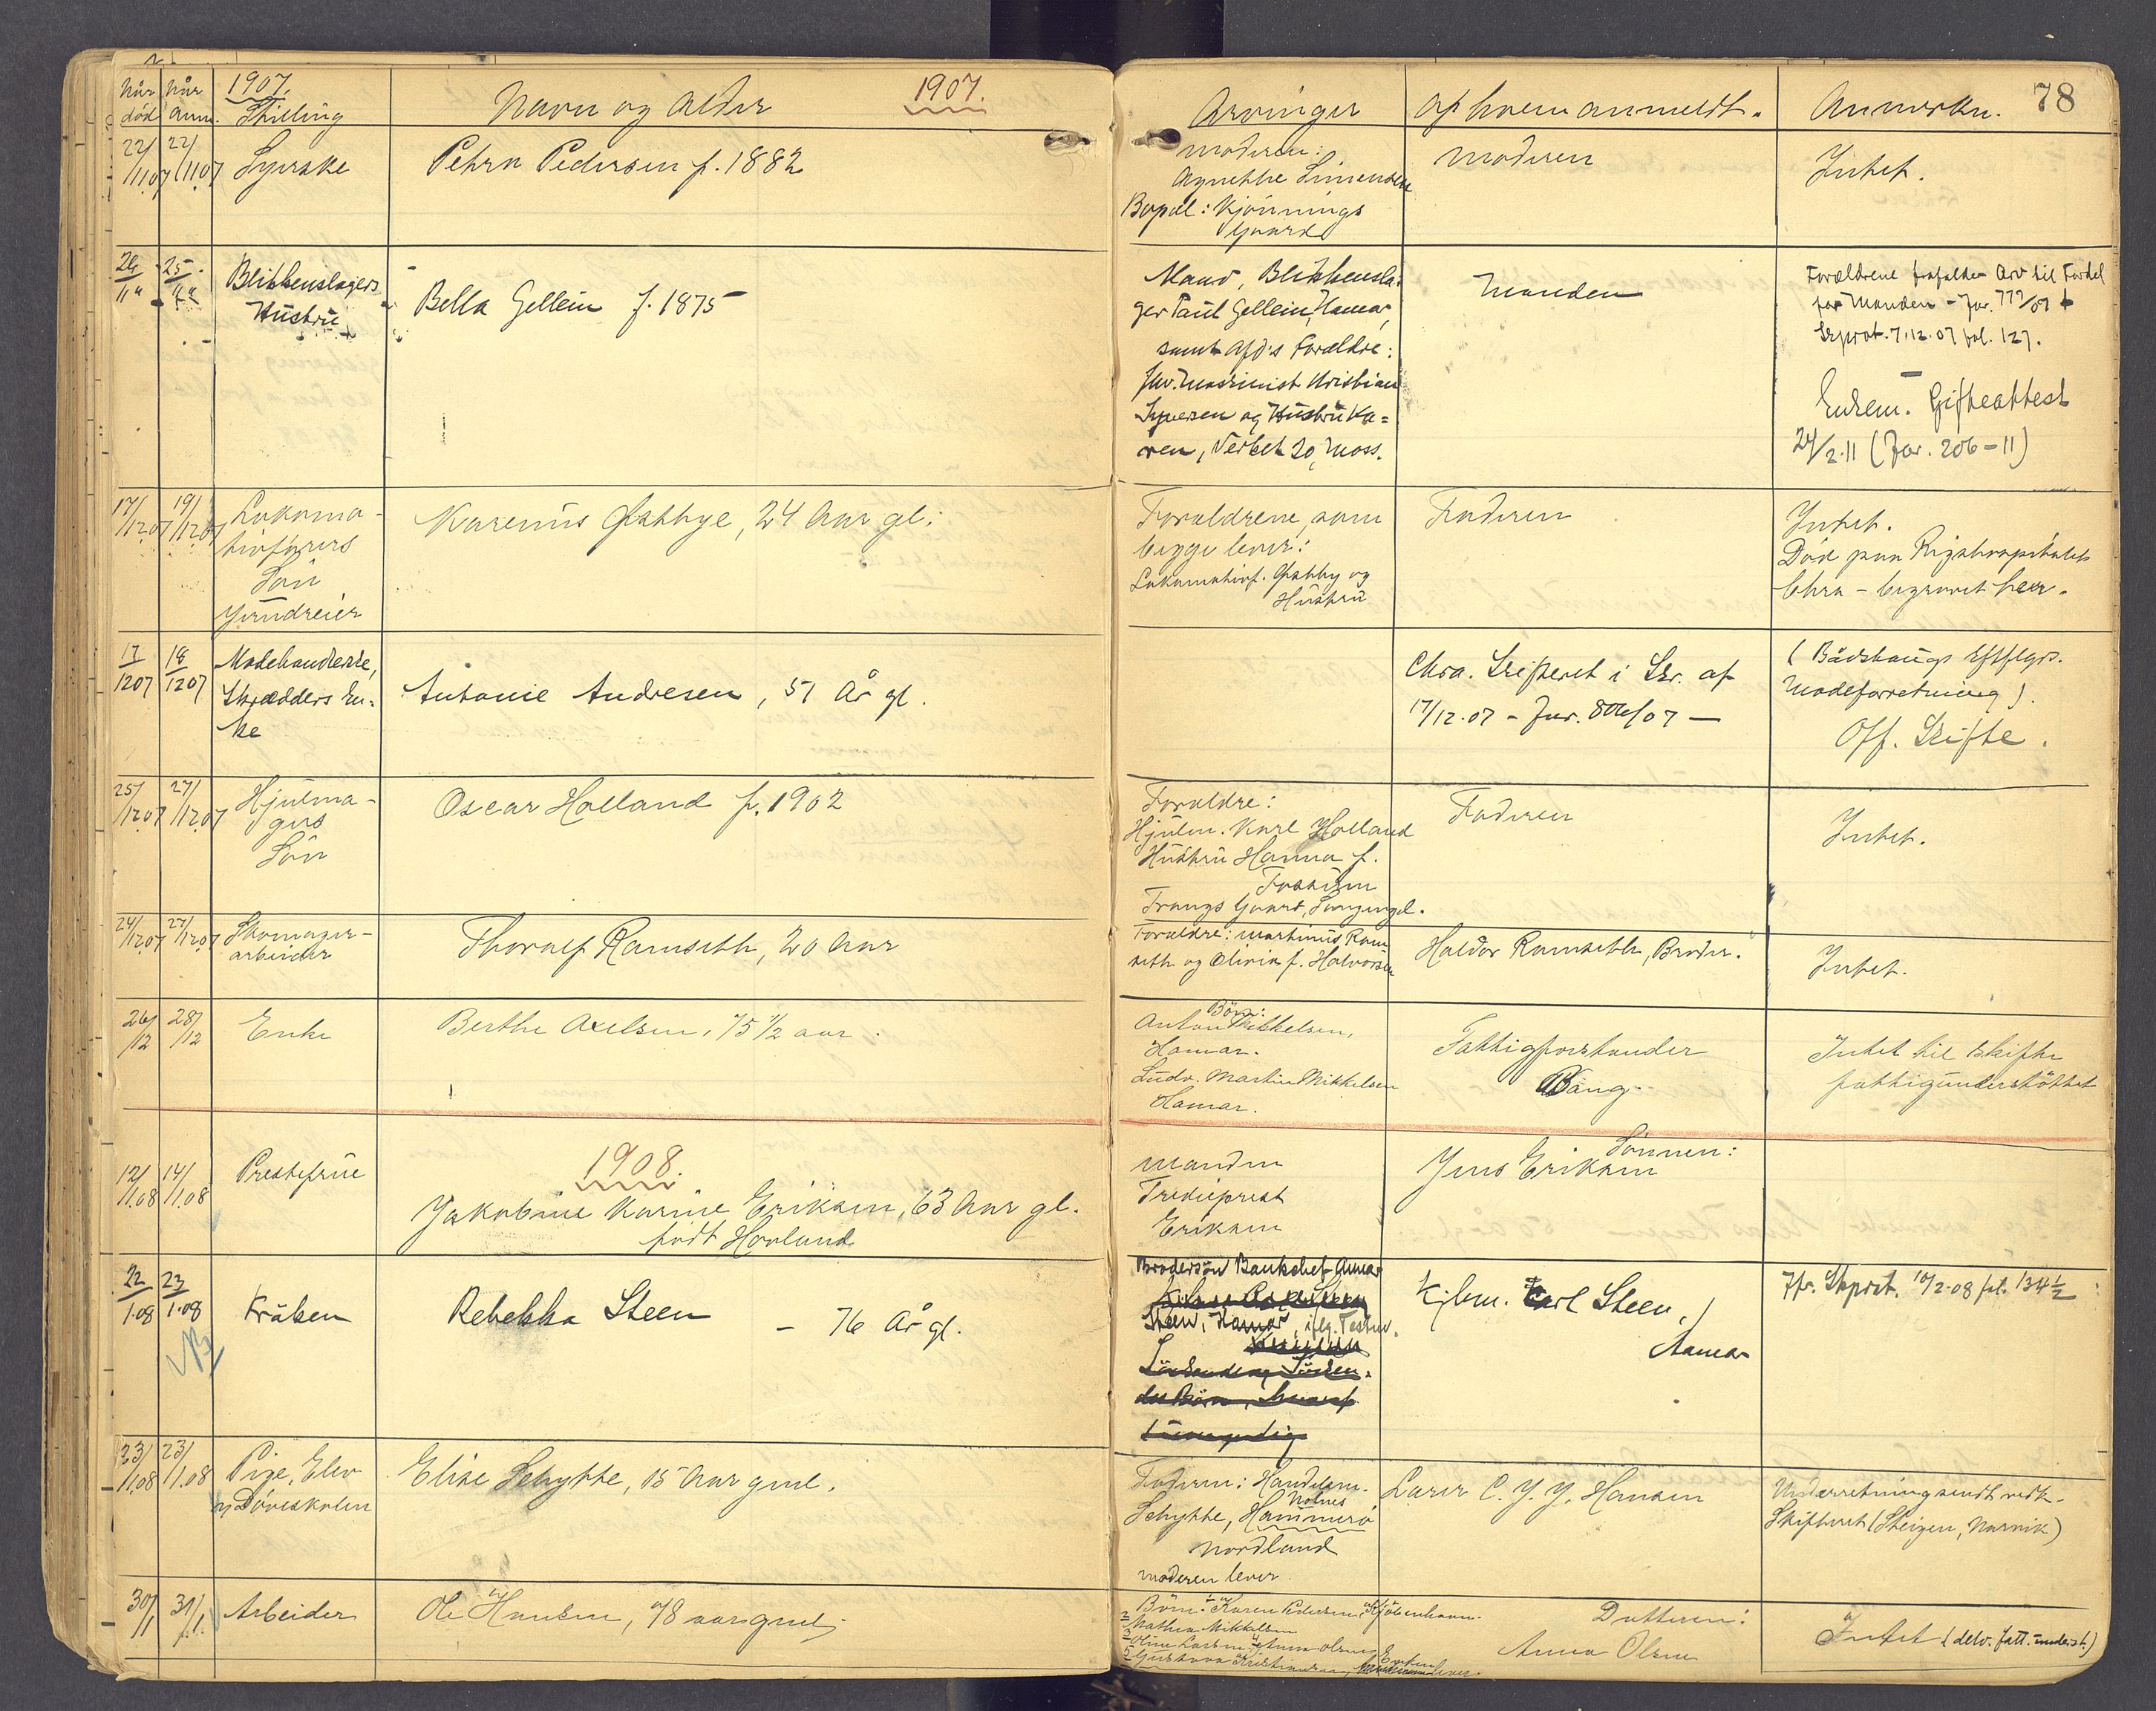 Når død
Når anm.
1907.
Stilling
Navn og Alder
1907.
Arvinger
Af hvem anmeldt.
Anmerkn.
78
22/11 07
22/11 07
Syerske
Petra Pedersen f. 1882
Moderen:
Agnethe Simensen
Bopæl: Kjønnings
Gaard
Moderen
Intet.
24/11 "
25/11 "
Blikkenslagers
Hustru
Bella Gellein f. 1875
Mand, Blikkensla-
ger Paul Gellein, Hamar,
samt afd's Forældre:
fhv. Maskinist Kristian
Syversen og Hustru Ka=
ren, Verket 20, Moss.
Manden
Forældrene frafalder Arv til Fordel
for Manden - Jor. 779/07
Skprot. 7.12.07 fol. 127.
Enkem. Gifteattest
24/2.11 (Jor. 206-11)
17/12 07
19/12 07
Lokomo-
tivførers
Søn
Gründreier
Karenius Østbye, 24 Aar gl.
Forældrene, som
begge lever:
Lokomotivf. Østby og
Hustru
Faderen
Intet.
Død paa Rigshospitalet
Chra - begravet her.
17/12 07
18/12 07
Modehandlerske,
Skrædders En=
ke
Antonie Andresen, 51 År gl.
Chra. Skifteret i Skr. af
17/12.07 - Jur. 806/07 -
(Bådshaugs Eftflgrs.
Modeforretning).
Off. Skifte.
25/12 07
27/12 07
Hjulma-
gers
Søn
Oscar Holland f. 1902
Forældre:
Hjulm. Karl Holland
Hustru Hanna f.
Fossum
Frangs Gaard, Langengd.
Faderen
Intet.
24/12 07
27/12 07
Skomager-
arbeider
Thoralf Ramseth, 20 Aar
Forældre: Martinus Ram
seth og Olivia f. Halvorsen
Haldor Ramseth, Broder.
Intet.
26/12
28/12
Enke
Berthe Axelsen, 75 1/2 aar.
Børn:
Anton Mikkelsen,
Hamar.
Ludv. Martin Mikkelsen
Hamar.
Fattigforstander
Bang
Intet til skifte
fattigunderstøttet
1908.
12/1.08
14/1.08
Prestefrue
Jakobine Karine Eriksen, 63 Aar gl.
født Hovland
Manden
Tredieprest
Eriksen
Sønnen:
Jens Eriksen
22/1.08
23/1.08
Frøken
Rebekka Steen - 76 År gl.
Brodersøn Bankchef Annar
Steen, Hamar, iflg. Testm.
Kjbm. Carl Steen,
Hamar
Jfr. Skprot. 10/2-08 fol. 134 1/2
23/1.08
23/1.08
Pige, Elev
v/ Døveskolen
Elise Schytte, 15 Aar gml.
Faderen: Handelsm.
Schytte, Holmes
Hammerø
Nordland
Moderen lever.
Lærer C. J. J. Hansen
Underretning sendt vedk.
Skifteret (Steigen, Narvik)
30/1
31/1
Arbeider
Ole Hansen, 78 aar gml.
Børn: 1 Karen Pedersen, Kjøbenhavn.
2 Mathea Mikkelsen
3 Oline Larsen 4 Anna Olsen
5 Gustava Kristiansen, Enken lever.
Datteren:
Anna Olsen
Intet (delv. fatt. underst.)